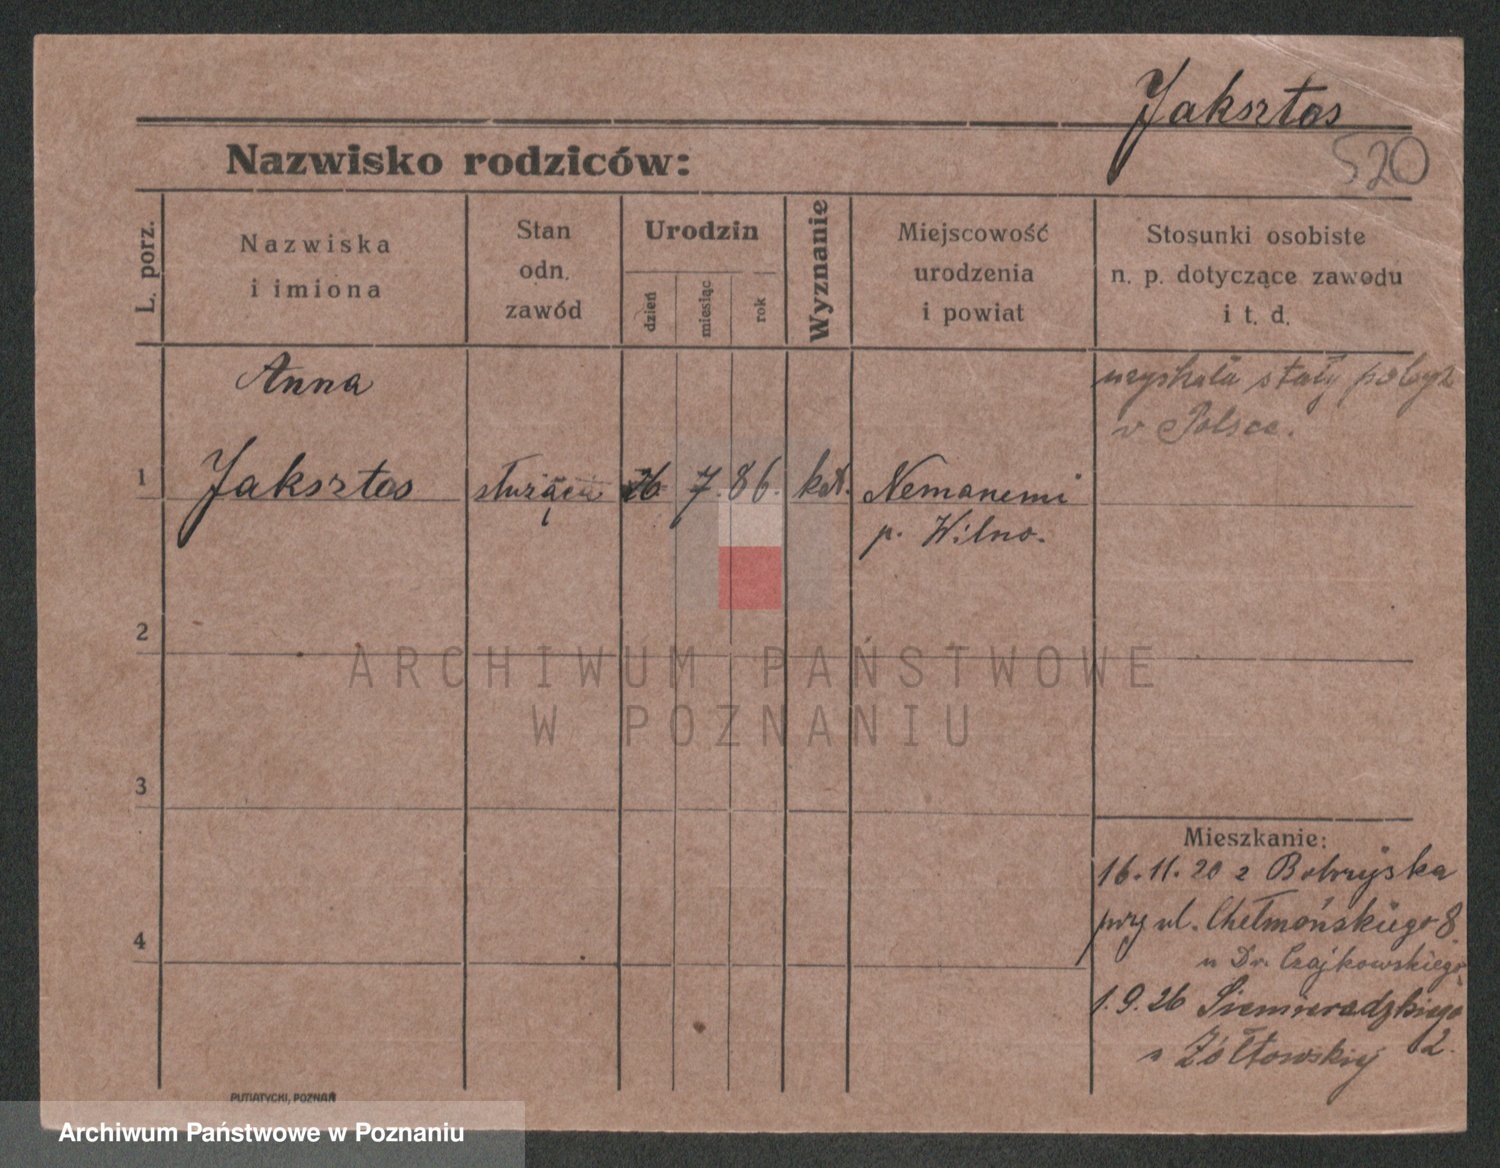 Jaksztos
520
Nazwisko rodziców:
L. porz.
Nazwiska
i imiona
Stan
odn.
zawód
Urodzin
dzień
miesiąc
rok
Wyznanie
Miejscowość
urodzenia
i powiat
Stosunki osobiste
n. p. dotyczące zawodu
i t. d.
Anna
uzyskała stały pobyt
w Polsce.
1
Jaksztos
służąca
26. 7. 86.
kat.
Nemanemi
p. Wilno.
2
ARCHIWUM PAŃSTWOWE
W POZNANIU
3
Mieszkanie:
16.11.20 z Bobrujska
przy ul. Chełmońskiego 8
4
u Dr. Czajkowskiego
1.9.26 Siemieradzkiego
2.
u Żółtowskiej
PUTIATYCKI, POZNAŃ
Archiwum Państwowe w Poznaniu